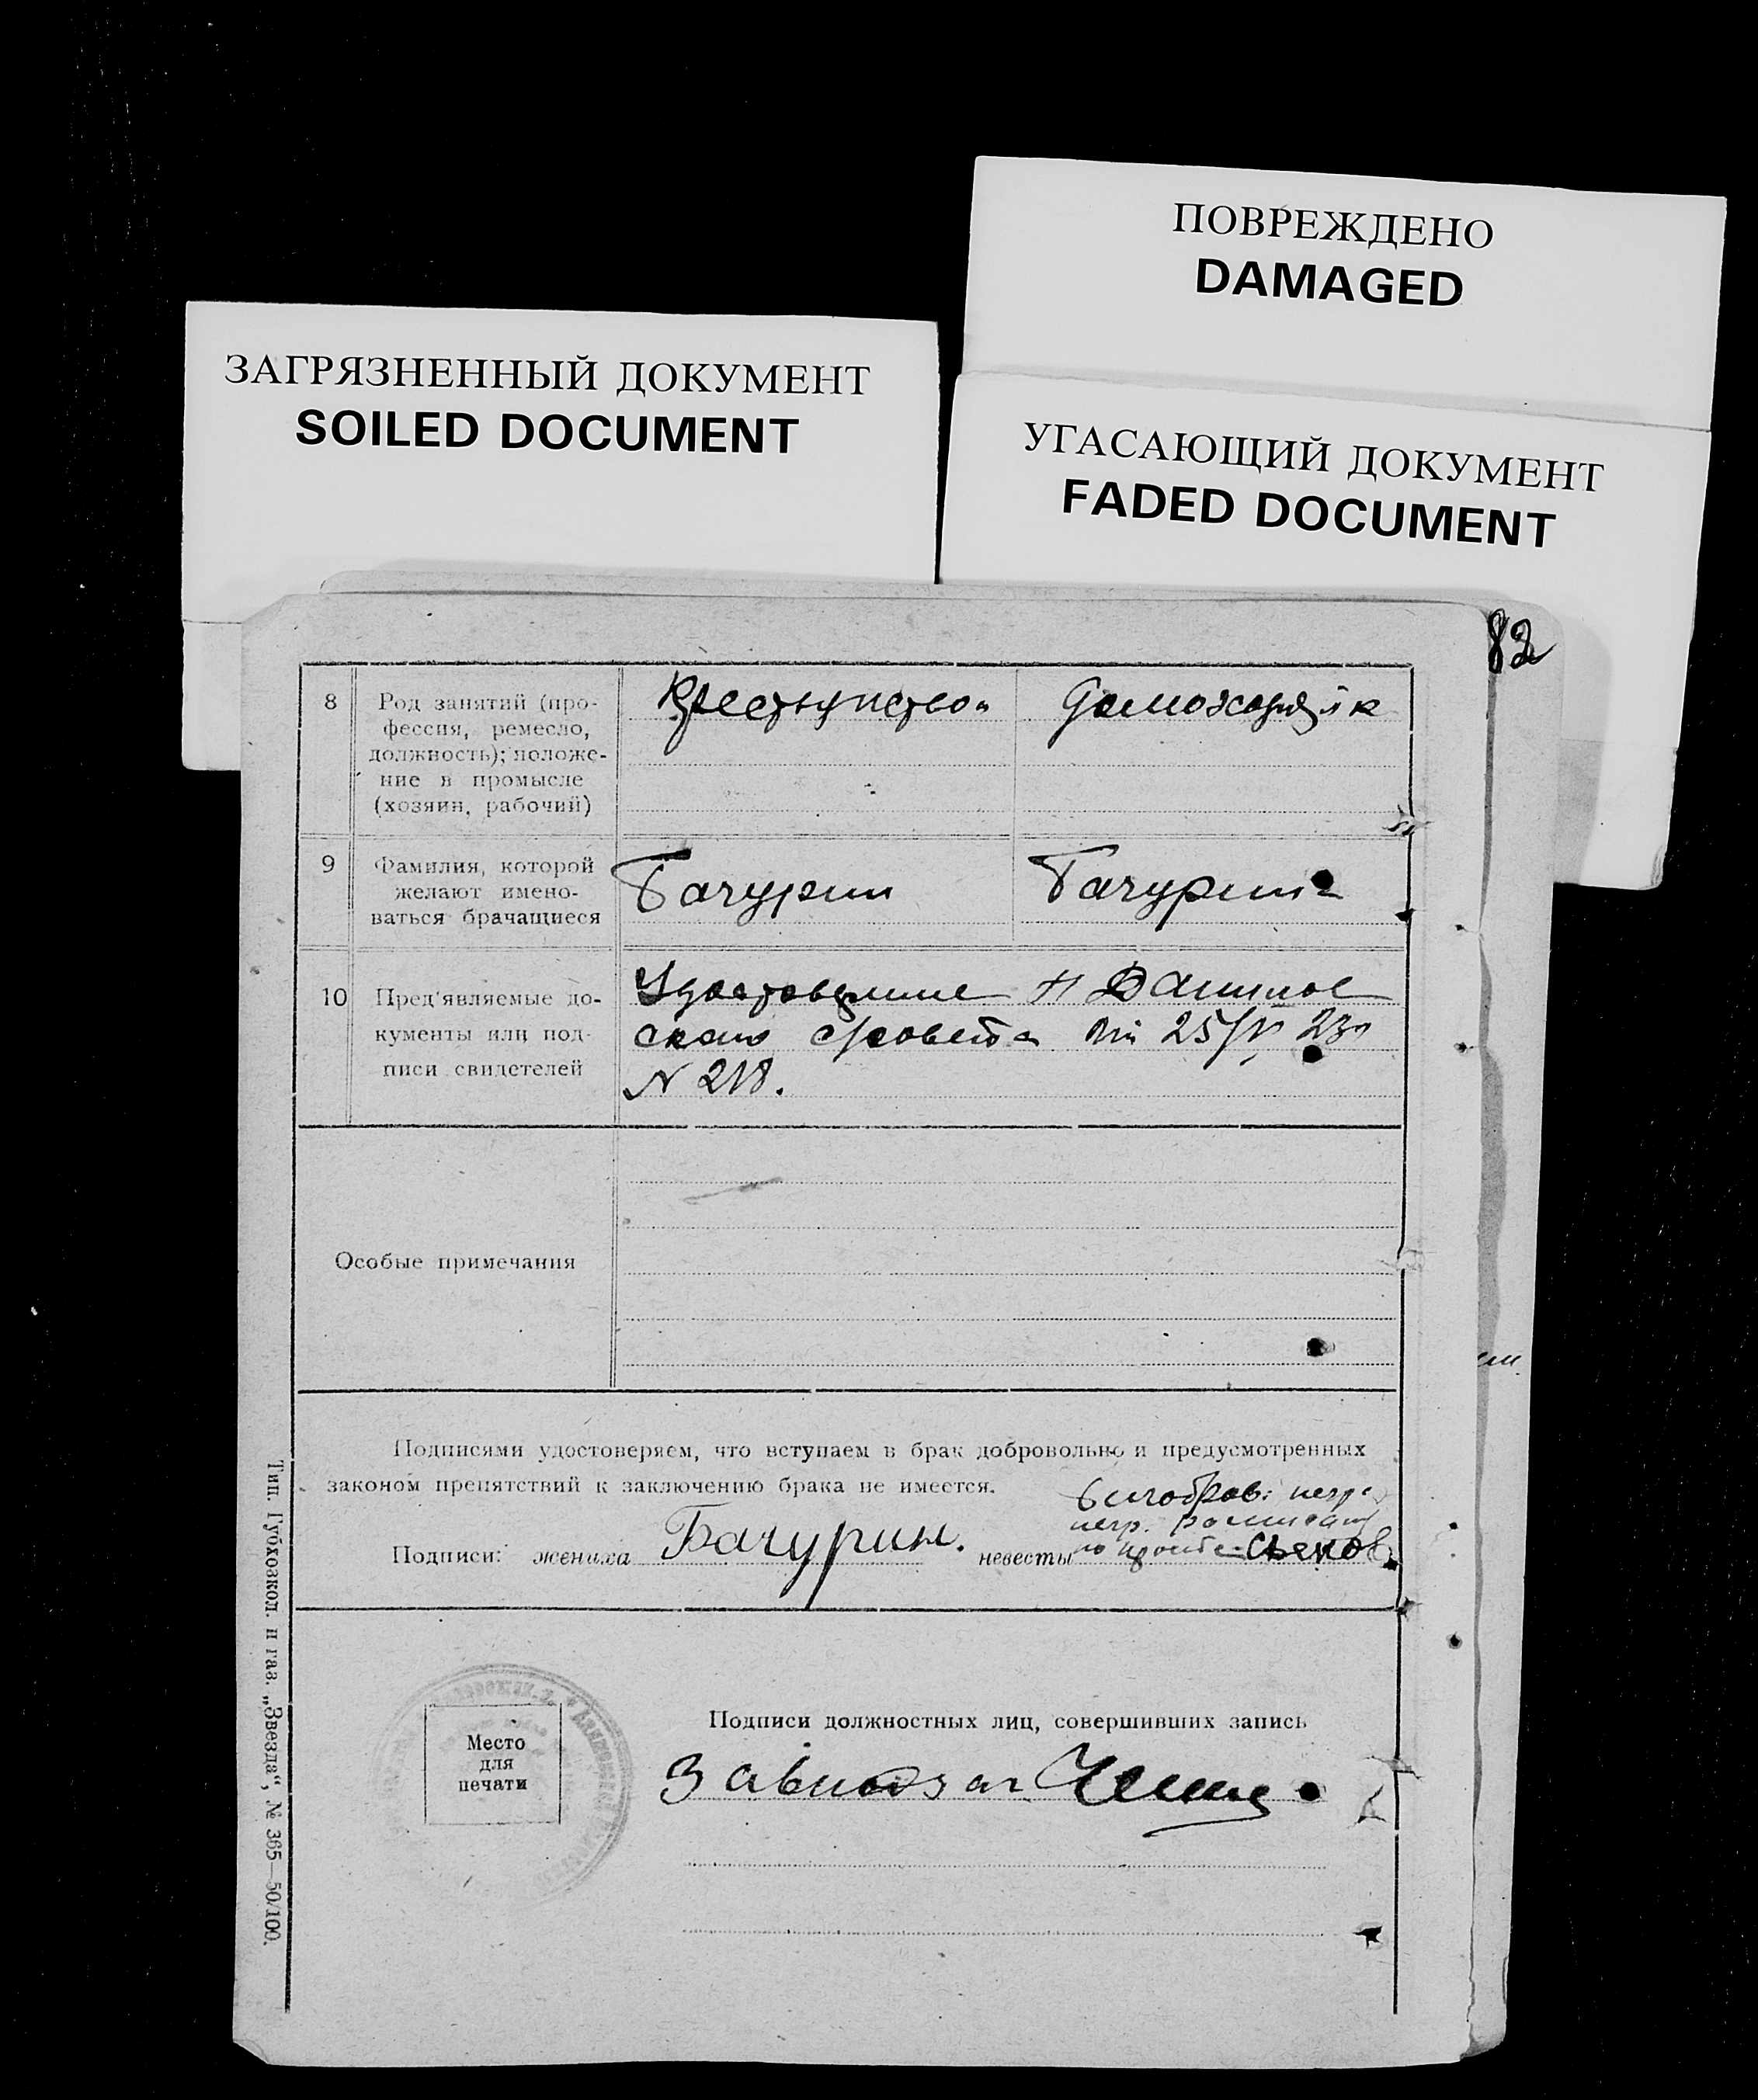 ПОВРЕЖДЕНО
DAMAGED
ЗАГРЯЗНЕННЫЙ ДОКУМЕНТ
SOILED DOCUMENT
УГАСАЮЩИЙ ДОКУМЕНТ
FADED DOCUMENT
82
8
Род занятий (про-
фессия, ремесло,
должность); положе-
ние в промысле
(хозяин, рабочий)
Крестьянство
9
Фамилия, которой
желают имено-
ваться брачащиеся
Бачурин
Бачурина
10
Пред'являемые до-
кументы или под-
писи свидетелей
Удостоверение
ского с/совета от 25/V 23
N 218.
Особые примечания
Подписями удостоверяем, что вступаем в брак добровольно и предусмотренных
законом препятствий к заключению брака не имеется.
Подписи: жениха Бачурин. невесты
Место
для
печати
Подписи должностных лиц, совершивших запись
Тип. Губхозкол. и газ. „Звезда“, № 365—50/100.